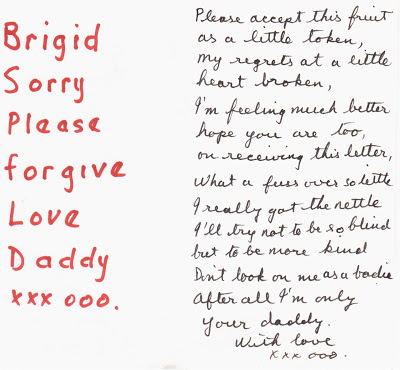 Brigid
Sorry
Please
forgive
Love
Daddy
xxx ooo.
Please accept this fruit
as a little token,
my regrets at a little
heart broken,
I'm feeling much better
hope you are too,
on receiving this letter,
What a fuss over so little
I really got the nettle
I'll try not to be so blind
but to be more kind
Don't look on me as a badie
After all I'm only
your daddy.
With love
xxx ooo.